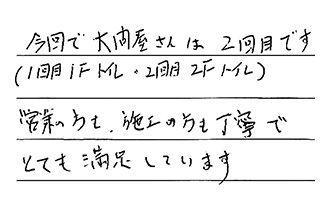 今回で大問屋さんは2回目です
(1回目1Fトイレ・2回目2Fトイレ)
営業の方も、施工の方も丁寧で
とても満足しています